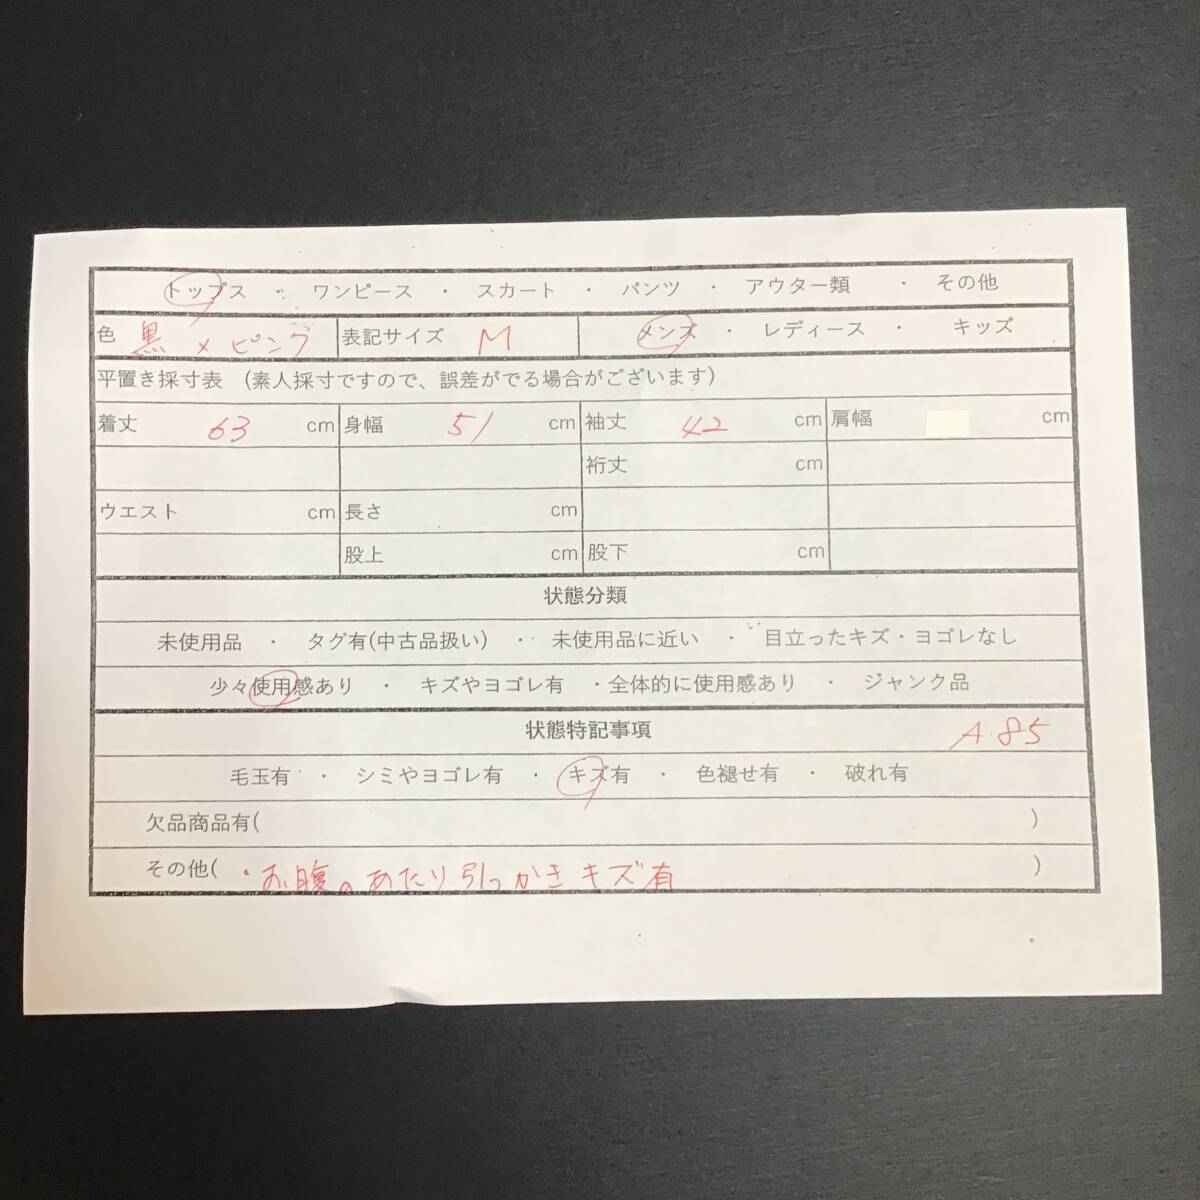 トップス ・ ワンピース ・ スカート ・ パンツ ・ アウター類 ・ その他
色 黒 × ピンク 表記サイズ M メンズ ・ レディース ・ キッズ
平置き採寸表 (素人採寸ですので、誤差がでる場合がございます)
着丈 63 cm 身幅 51 cm 袖丈 42 cm 肩幅 cm
裄丈 cm
ウエスト cm 長さ cm
股上 cm 股下 cm
状態分類
未使用品 ・ タグ有(中古品扱い) ・ 未使用品に近い ・ 目立ったキズ・ヨゴレなし
少々使用感あり ・ キズやヨゴレ有 ・全体的に使用感あり ・ ジャンク品
状態特記事項 A・85
毛玉有 ・ シミやヨゴレ有 ・ キズ有 ・ 色褪せ有 ・ 破れ有
欠品商品有( )
その他( ・お腹のあたり引っかきキズ有 )